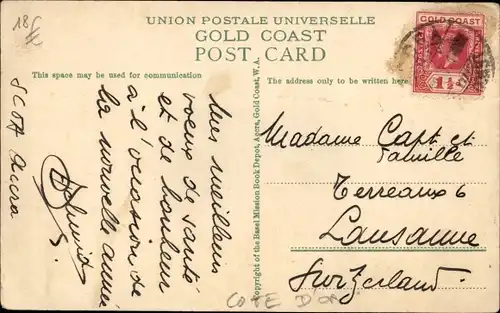 18f
UNION POSTALE UNIVERSELLE
GOLD COAST
POST CARD
This space may be used for communication
The address only to be written here
GOLD COAST
1½
Mes meilleurs
voeux de santé
et de bonheur
à l'occasion de
la nouvelle année
SCOA Accra
Copyright of the Basel Mission Book Depot, Accra, Gold Coast, W.A.
Madame Capt et
famille
Terreaux 6
Lausanne
Switzerland
COTE D'OR